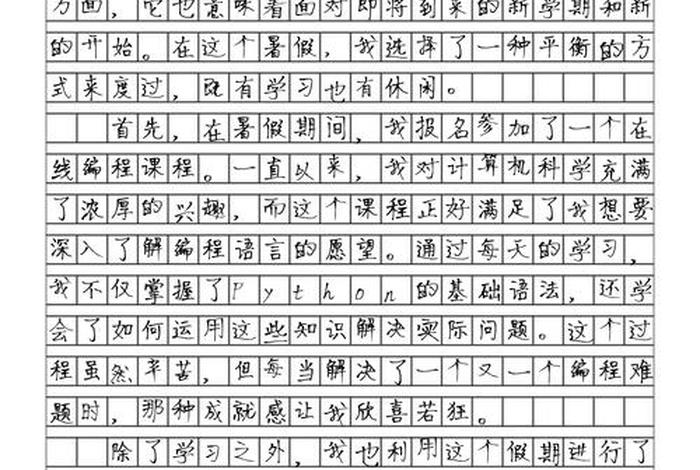 方面，它也意味着面对即将到来的新学期和新
的开始。在这个暑假，我选择了一种平衡的方
式来度过，既有学习也有休闲。
首先，在暑假期间，我报名参加了一个在
线编程课程。一直以来，我对计算机科学充满
了浓厚的兴趣，而这个课程正好满足了我想要
深入了解编程语言的愿望。通过每天的学习，
我不仅掌握了Python的基础语法，还学
会了如何运用这些知识解决实际问题。这个过
程虽然辛苦，但每当解决了一个又一个编程难
题时，那种成就感让我欣喜若狂。
除了学习之外，我也利用这个假期进行了